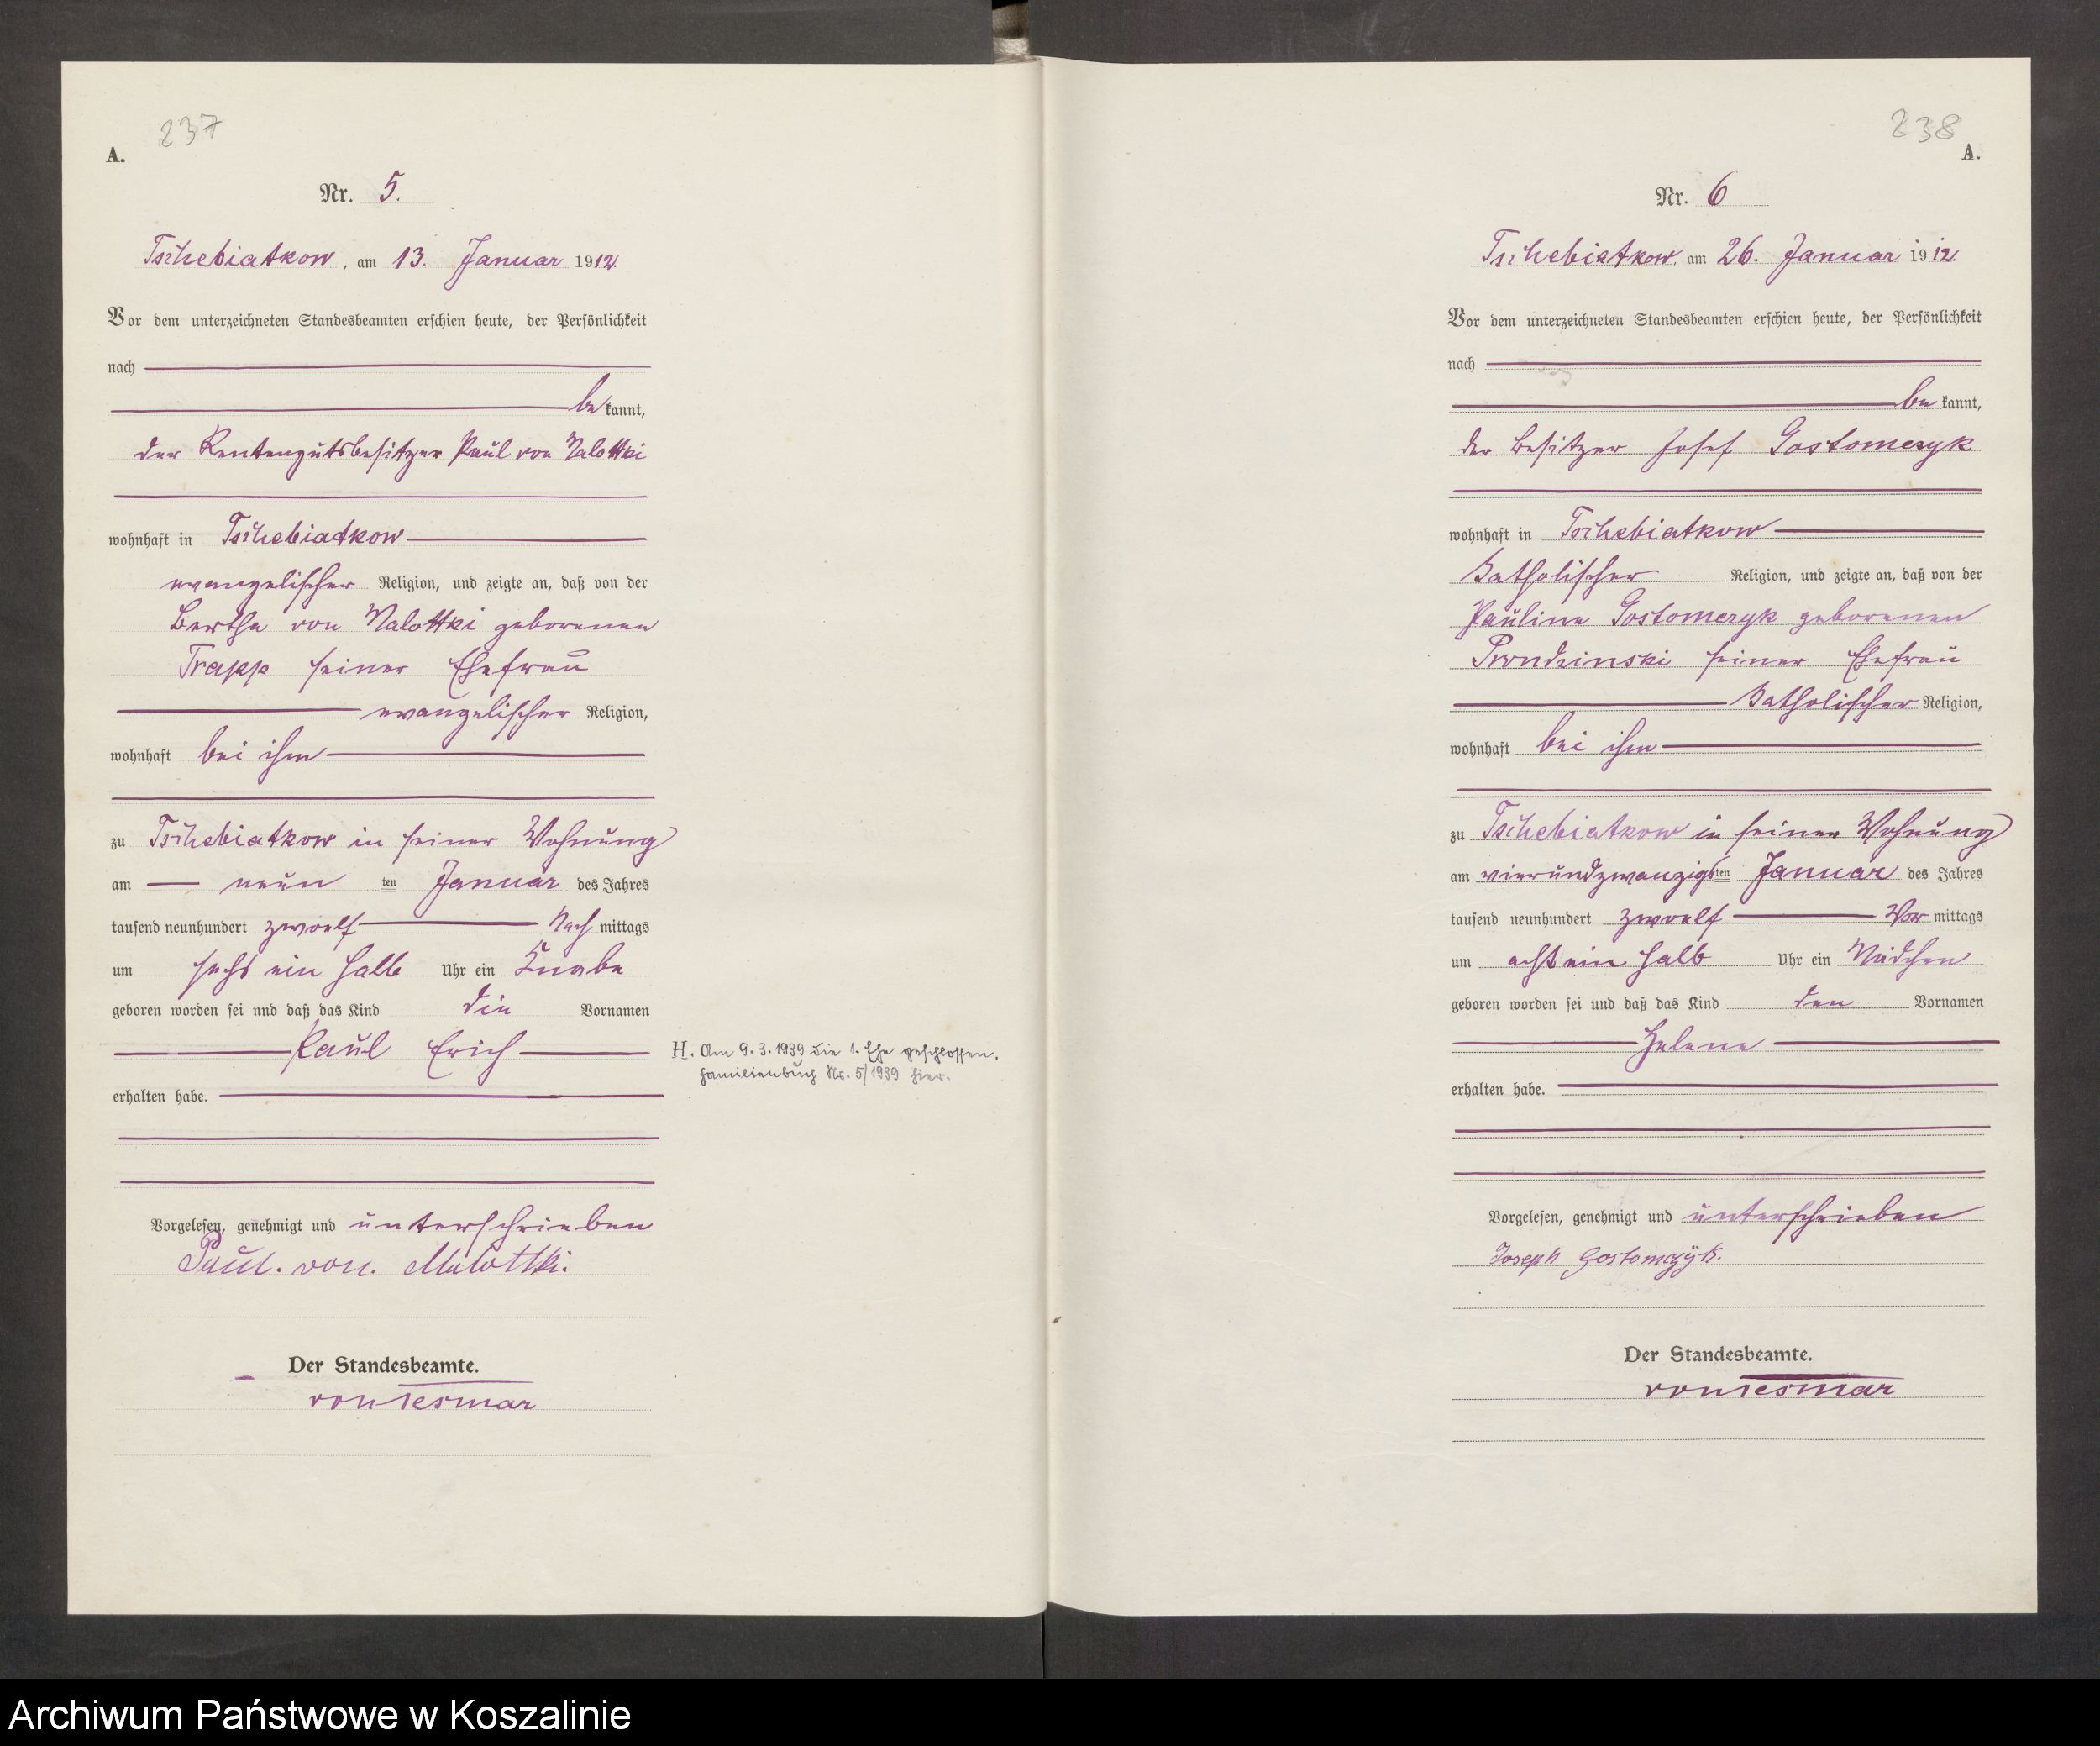 237
A.
Nr. 5.
Tschebiatkow, am 13. Januar 1912.
Vor dem unterzeichneten Standesbeamten erschien heute, der Persönlichkeit
nach
bekannt,
der Rentengutsbesitzer Paul von Malottki
wohnhaft in Tschebiatkow
evangelischer Religion, und zeigte an, daß von der
Bertha von Malottki geborenen
Trapp seiner Ehefrau
evangelischer Religion,
wohnhaft bei ihm
zu Tschebiatkow in seiner Wohnung
am neun ten Januar des Jahres
tausend neunhundert zwoelf Nachmittags
um sechs ein halb Uhr ein Knabe
geboren worden sei nnd daß das Kind die Vornamen
Paul Erich
H. Am 9.3.1939 die 1. Ehe geschlossen.
Familienbuch Nr. 5/1939 hier.
erhalten habe.
Vorgelesen, genehmigt und unterschrieben
Paul. von. Malottki.
Der Standesbeamte.
von Tesmar
238
A.
Nr. 6
Tschebiatkow, am 26. Januar 1912.
Vor dem unterzeichneten Standesbeamten erschien heute, der Persönlichkeit
nach
bekannt,
der Besitzer Josef Gostomczyk
wohnhaft in Tschebiatkow
Katholischer Religion, und zeigte an, daß von der
Pauline Gostomczyk geborenen
Prondzinski seiner Ehefrau
Katholischer Religion,
wohnhaft bei ihm
zu Tschebiatkow in seiner Wohnung
am vierundzwanzigsten Januar des Jahres
tausend neunhundert zwoelf Vormittags
um acht ein halb Uhr ein Mädchen
geboren worden sei und daß das Kind den Vornamen
Helene
erhalten habe.
Vorgelesen, genehmigt und unterschrieben
Joseph Gostomczÿk.
Der Standesbeamte.
von Tesmar
Archiwum Państwowe w Koszalinie